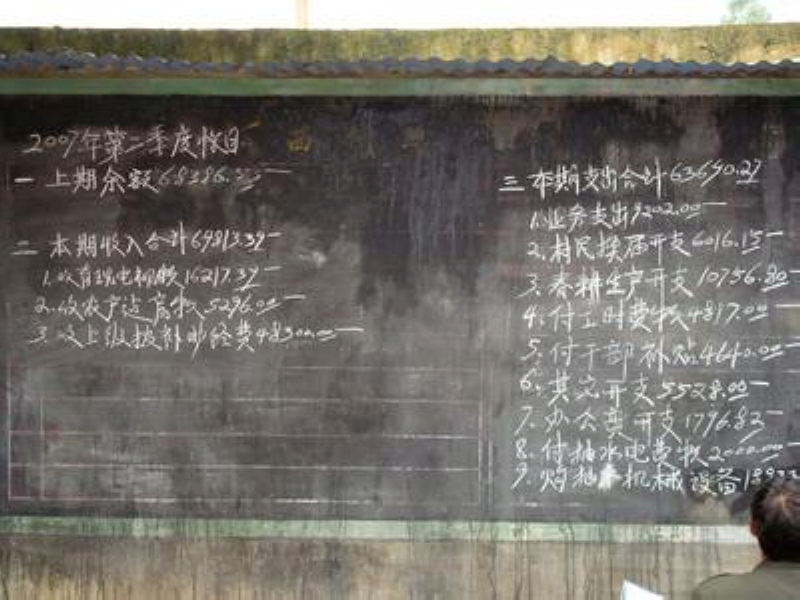 2007年第二季度帐目
一 上期余额68386.
二 本期收入合计69813.37
1.收有线电视款16217.37
2.收农产 5296.00
3.收上级拨补助经费48300.00
三 本期支出合计63640.27
1.业务支出9202.00
2.村民换届开支6016.15
3.春耕生产开支10756.80
4.付工时费款4817.00
5.付干部补贴4640.00
6.其它开支5528.00
7.办公费开支1796.82
8.付抽水电费款2000.00
9. 抽水机械设备